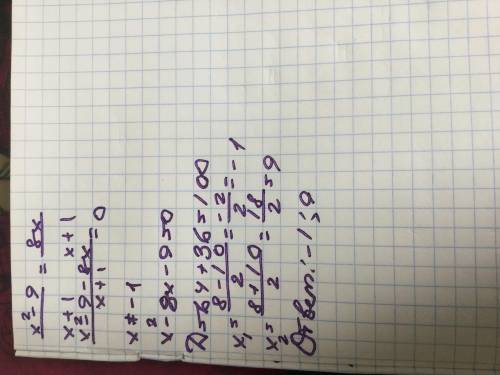 x²-9/x+1 = 8x/x+1
x²-9-8x/x+1 = 0
x ≠ -1
x²-8x-9=0
D=64+36=100
x₁= 8-10/2 = -2/2 = -1
x₂= 8+10/2 = 18/2 = 9
Ответ: -1; 9